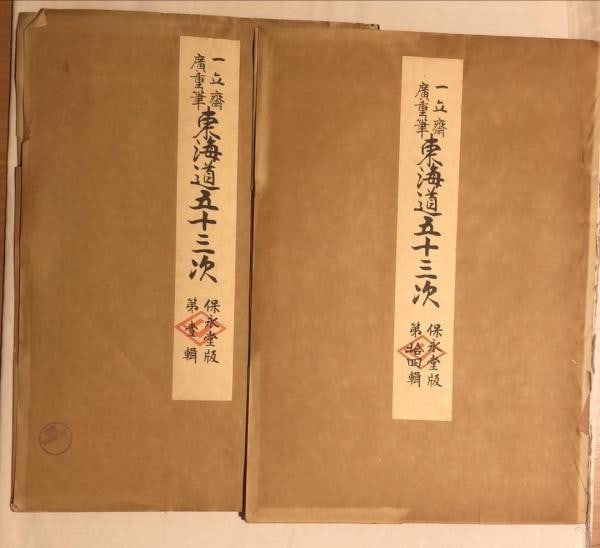 一立齋
廣重筆
東海道五十三次
保永堂版
第壹輯
一立齋
廣重筆
東海道五十三次
保永堂版
第拾四輯